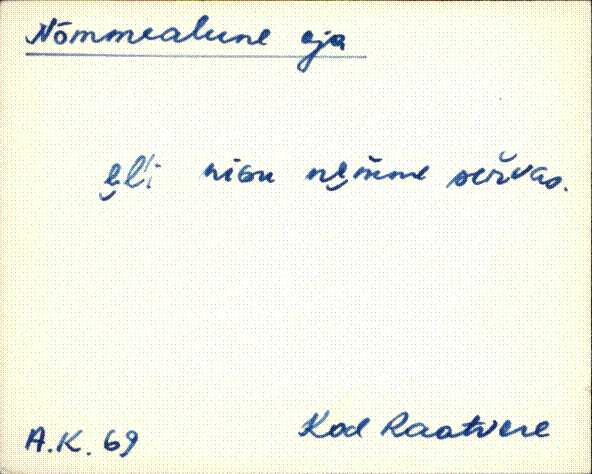 Nõmmealune oja
e̮l'i nisu ne̮m̆me ser̆vas.
A.K. 69
Kod Raatvere